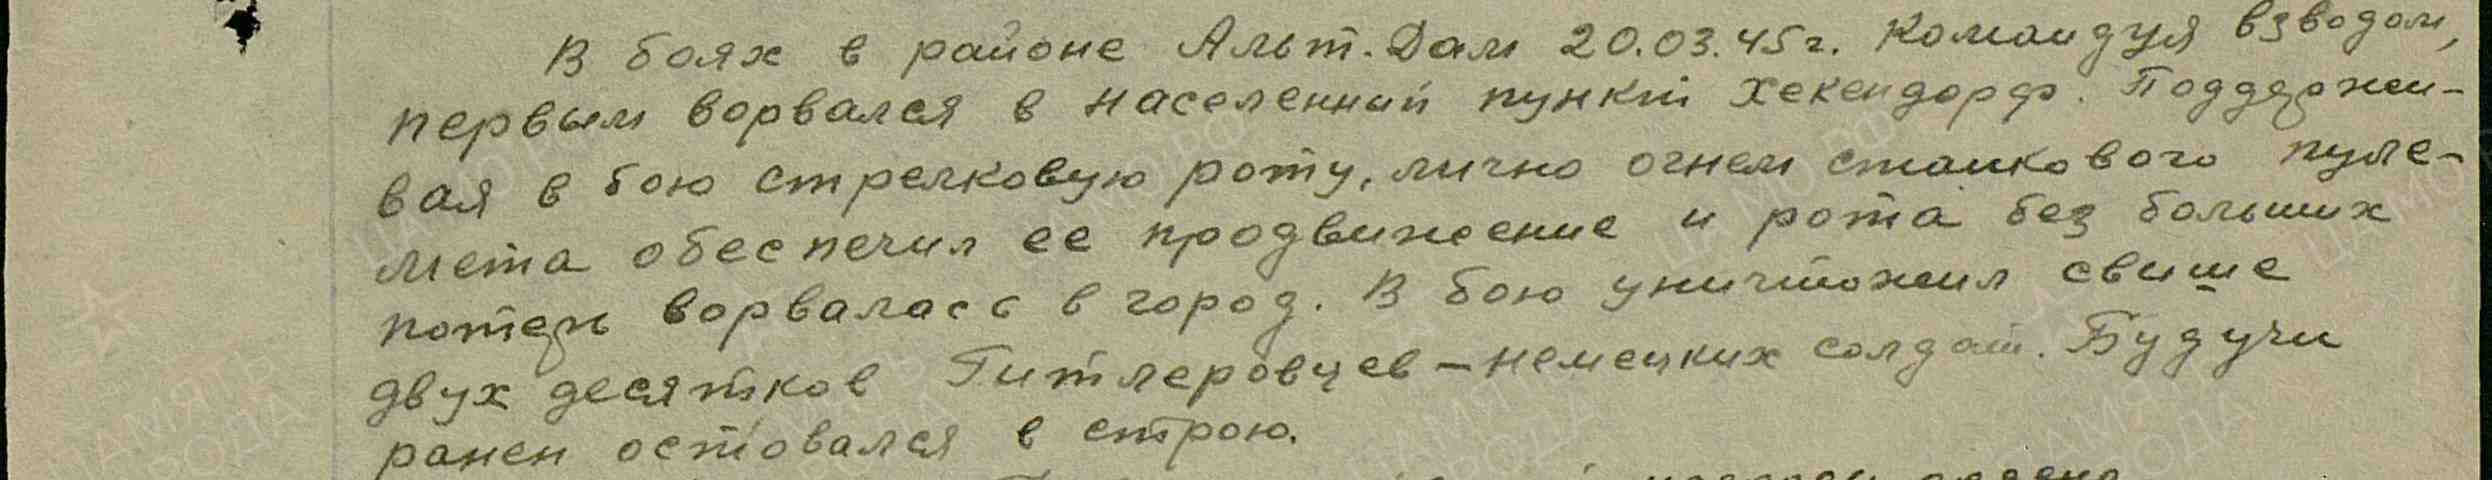 В боях в районе Альт-Дам 20.03.45г. Командуя взводом,
первым ворвался в населенный пункт Хекендорф. Поддержи-
вая в бою стрелковую роту, лично огнем станкового пуле-
мета обеспечил ее продвижение и рота без больших
потерь ворвалась в город. В бою уничтожил свыше
двух десятков Гитлеровцев - немецких солдат. Будучи
ранен остовался в строю.